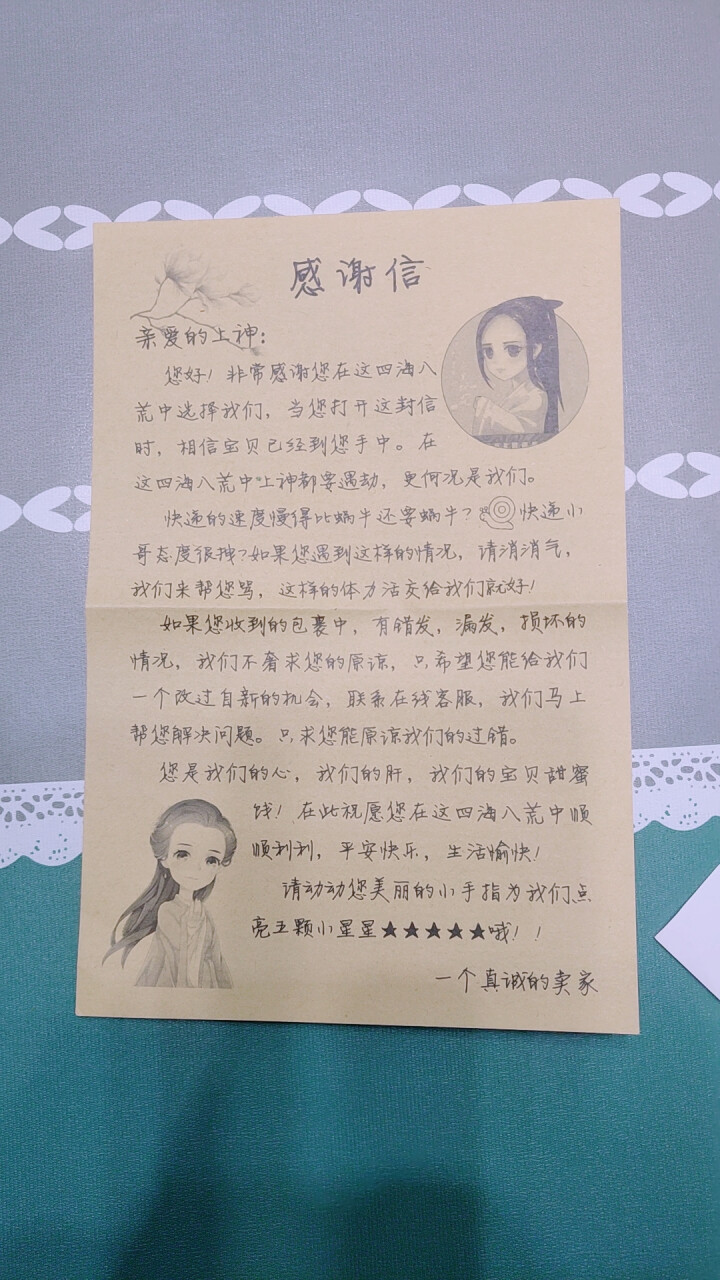 感谢信
亲爱的上神：
您好！非常感谢您在这四海八
荒中选择我们，当您打开这封信
时，相信宝贝已经到您手中。在
这四海八荒中上神都要遇劫，更何况是我们。
快递的速度慢得比蜗牛还要蜗牛？快递小
哥态度很拽？如果您遇到这样的情况，请消消气，
我们来帮您骂，这样的体力活交给我们就好！
如果您收到的包裹中，有错发，漏发，损坏的
情况，我们不奢求您的原谅，只希望您能给我们
一个改过自新的机会，联系在线客服，我们马上
帮您解决问题。只求您能原谅我们的过错。
您是我们的心，我们的肝，我们的宝贝甜蜜
饯！在此祝愿您在这四海八荒中顺
顺利利，平安快乐，生活愉快！
请动动您美丽的小手指为我们点
亮五颗小星星★★★★★哦！！
一个真诚的卖家